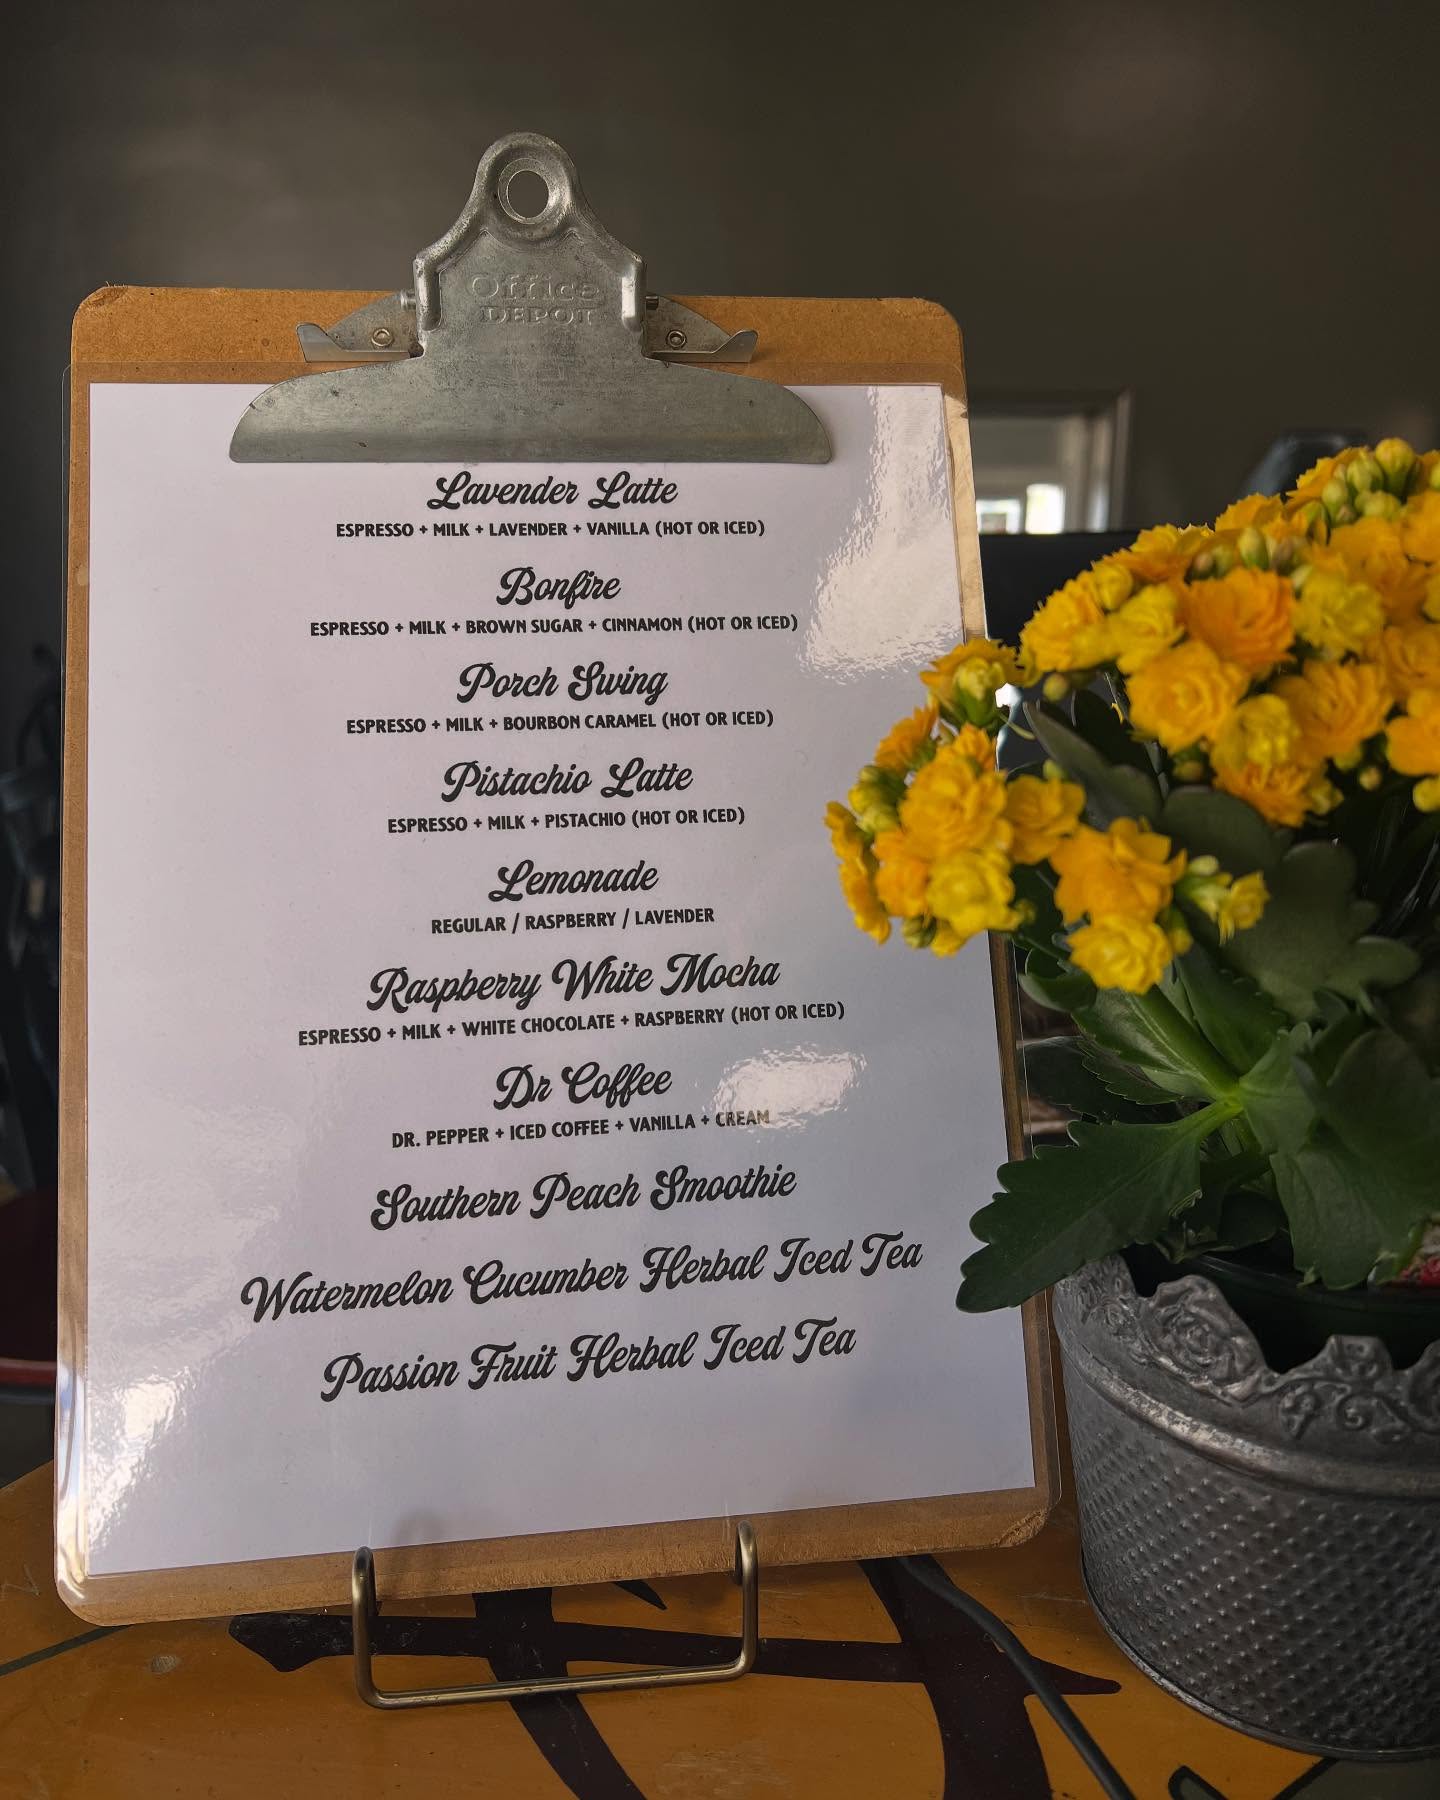 Office
DEPOT
Lavender Latte
ESPRESSO + MILK + LAVENDER + VANILLA (HOT OR ICED)
Bonfire
ESPRESSO + MILK + BROWN SUGAR + CINNAMON (HOT OR ICED)
Porch Swing
ESPRESSO + MILK + BOURBON CARAMEL (HOT OR ICED)
Pistachio Latte
ESPRESSO + MILK + PISTACHIO (HOT OR ICED)
Lemonade
REGULAR / RASPBERRY / LAVENDER
Raspberry White Mocha
ESPRESSO + MILK + WHITE CHOCOLATE + RASPBERRY (HOT OR ICED)
Dr Coffee
DR. PEPPER + ICED COFFEE + VANILLA + CREAM
Southern Peach Smoothie
Watermelon Cucumber Herbal Iced Tea
Passion Fruit Herbal Iced Tea